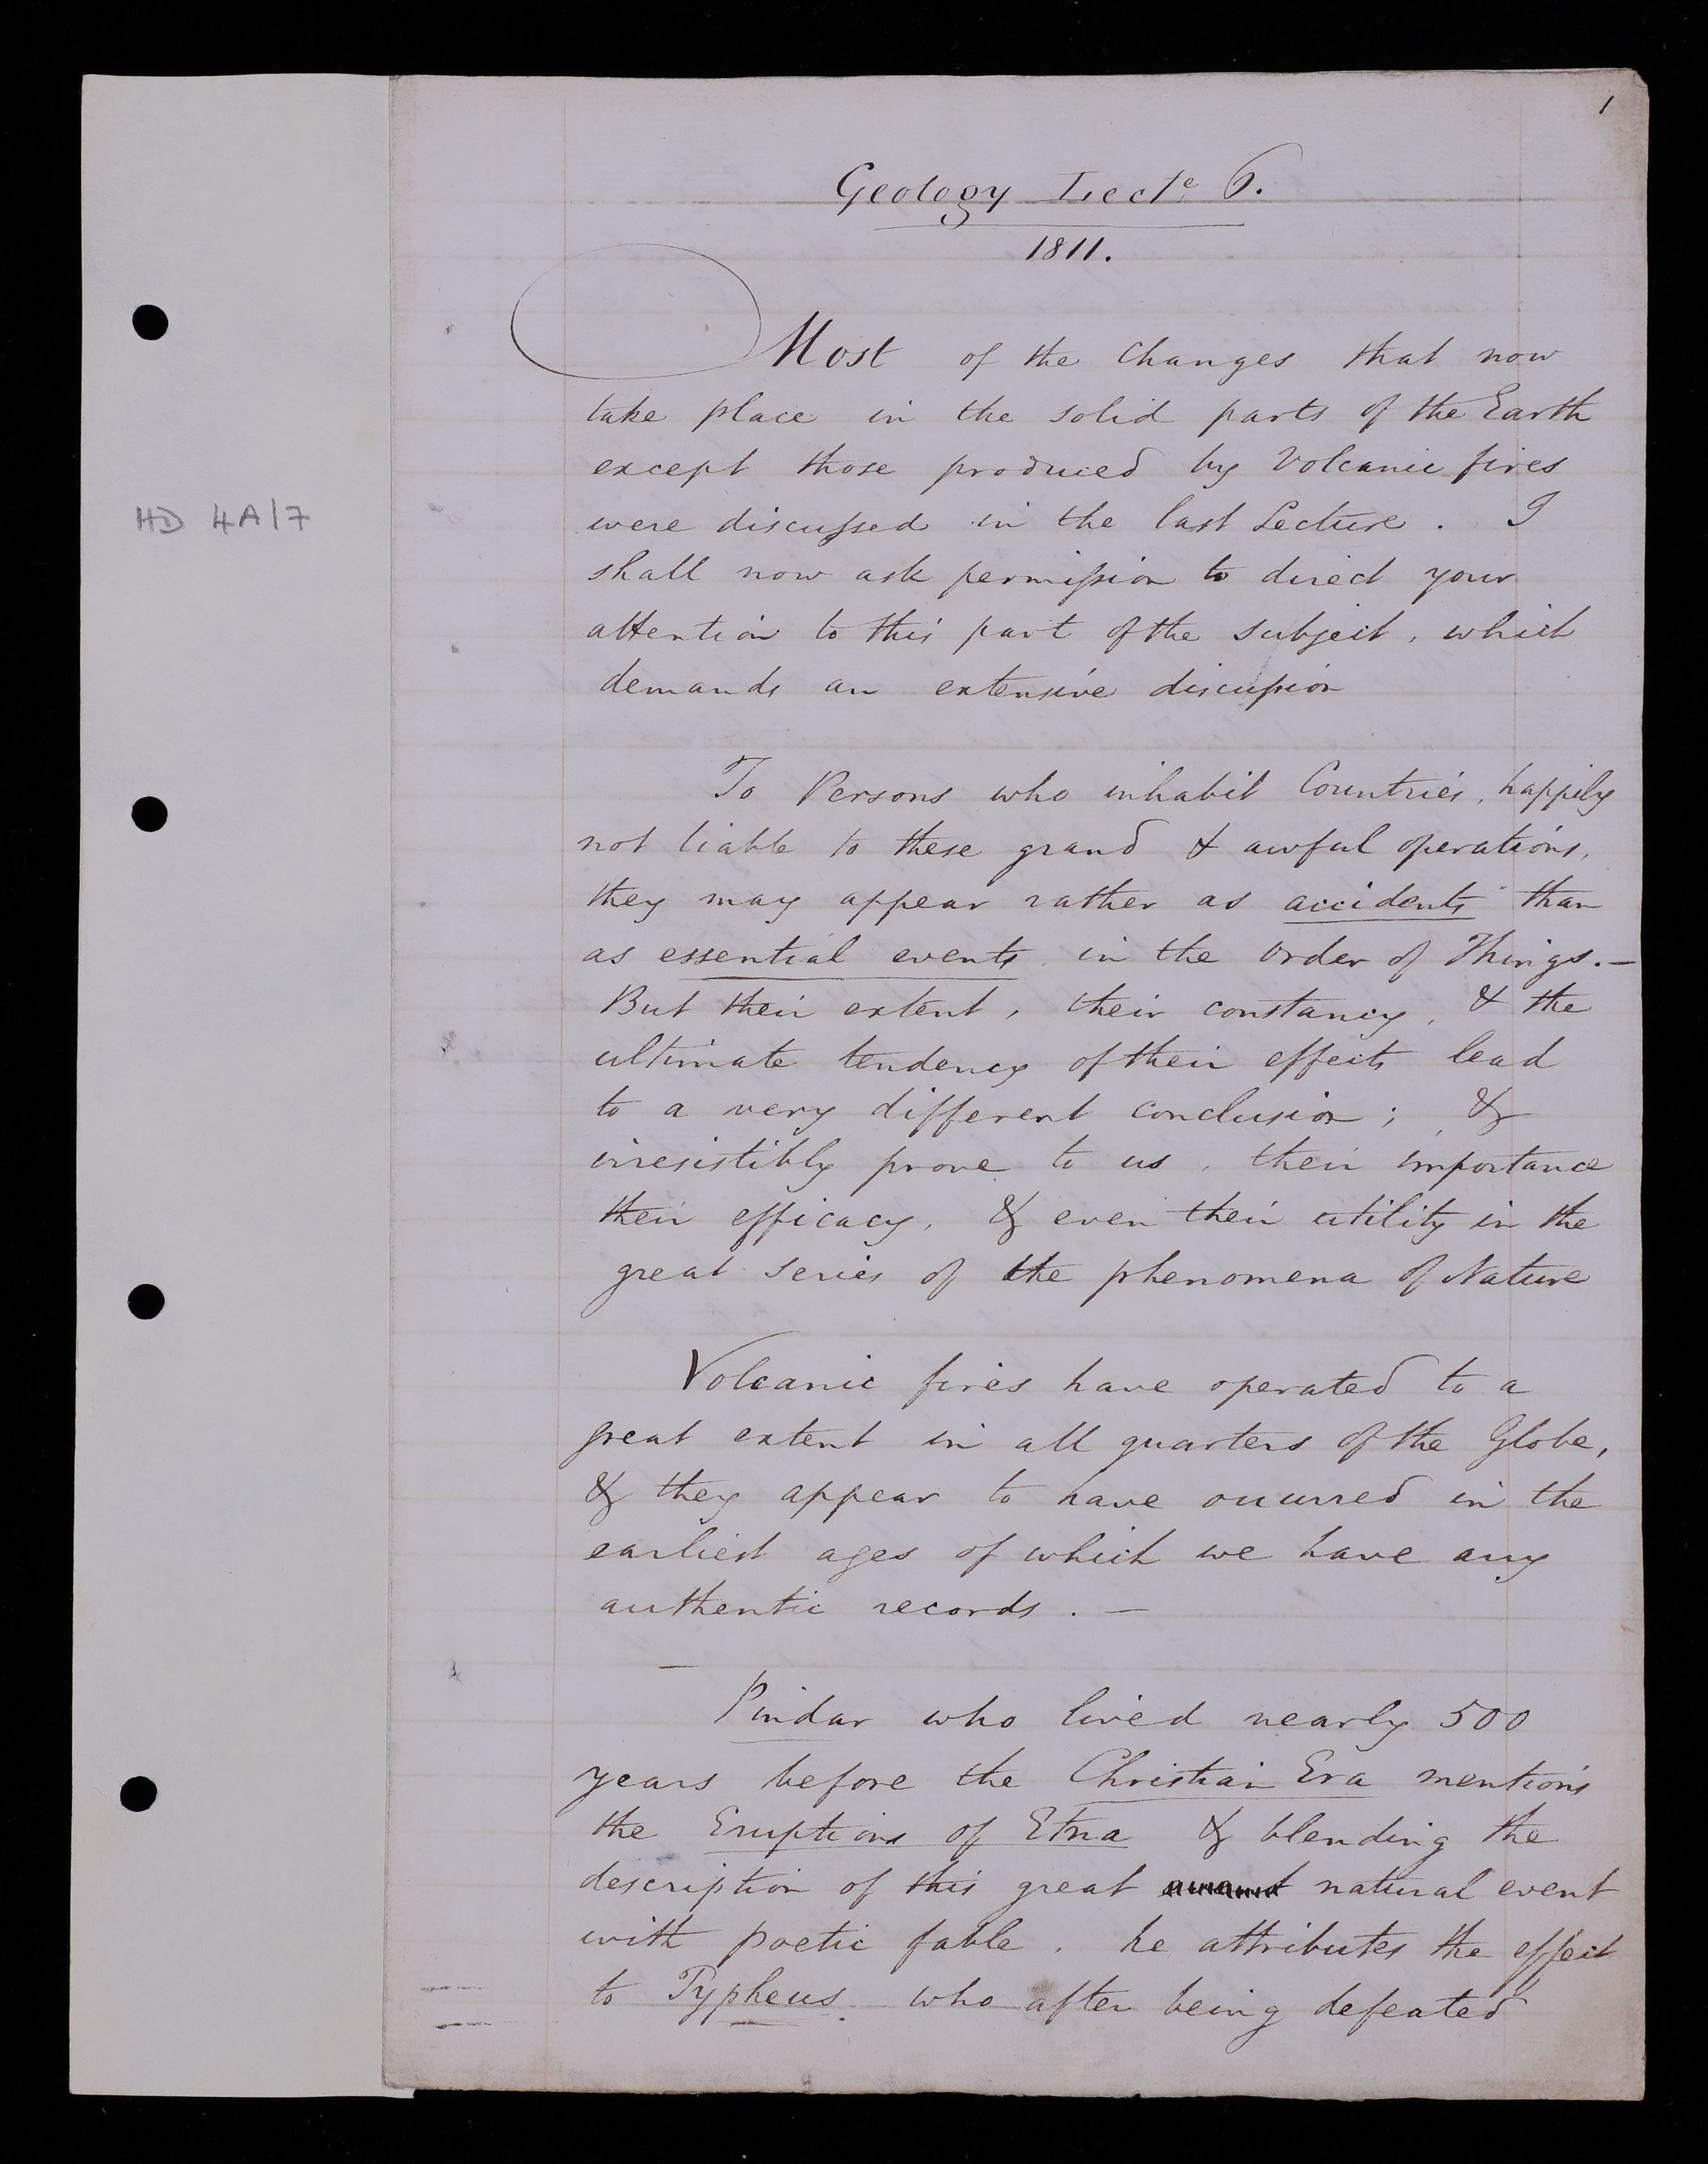 1
Geology Lecte 6.
1811.
Most of the Changes that now
take place in the solid parts of the Earth
except those produced by Volcanic fires
HD 4A/7
were discussed in the last Lecture. I
shall now ask permission to direct your
attention to this part of the subject, which
demands an extensive discussion
To Persons who inhabit Countries, happily
not liable to these grand & awful operations,
they may appear rather as accidents than
as essential events in the Order of Things.—
But their extent, their constancy, & the
ultimate tendency of their effects lead
to a very different conclusion; &
irresistibly prove to us, their importance
their efficacy, & even their utility in the
great series of the phenomena of Nature
Volcanic fires have operated to a
great extent in all quarters of the Globe,
& they appear to have occurred in the
earliest ages of which we have any
authentic records. —
Pindar who lived nearly 500
years before the Christian Era mentions
the Eruptions of Etna & blending the
description of this great natural event
with poetic fable. he attributes the effect
to Typheus. who after being defeated